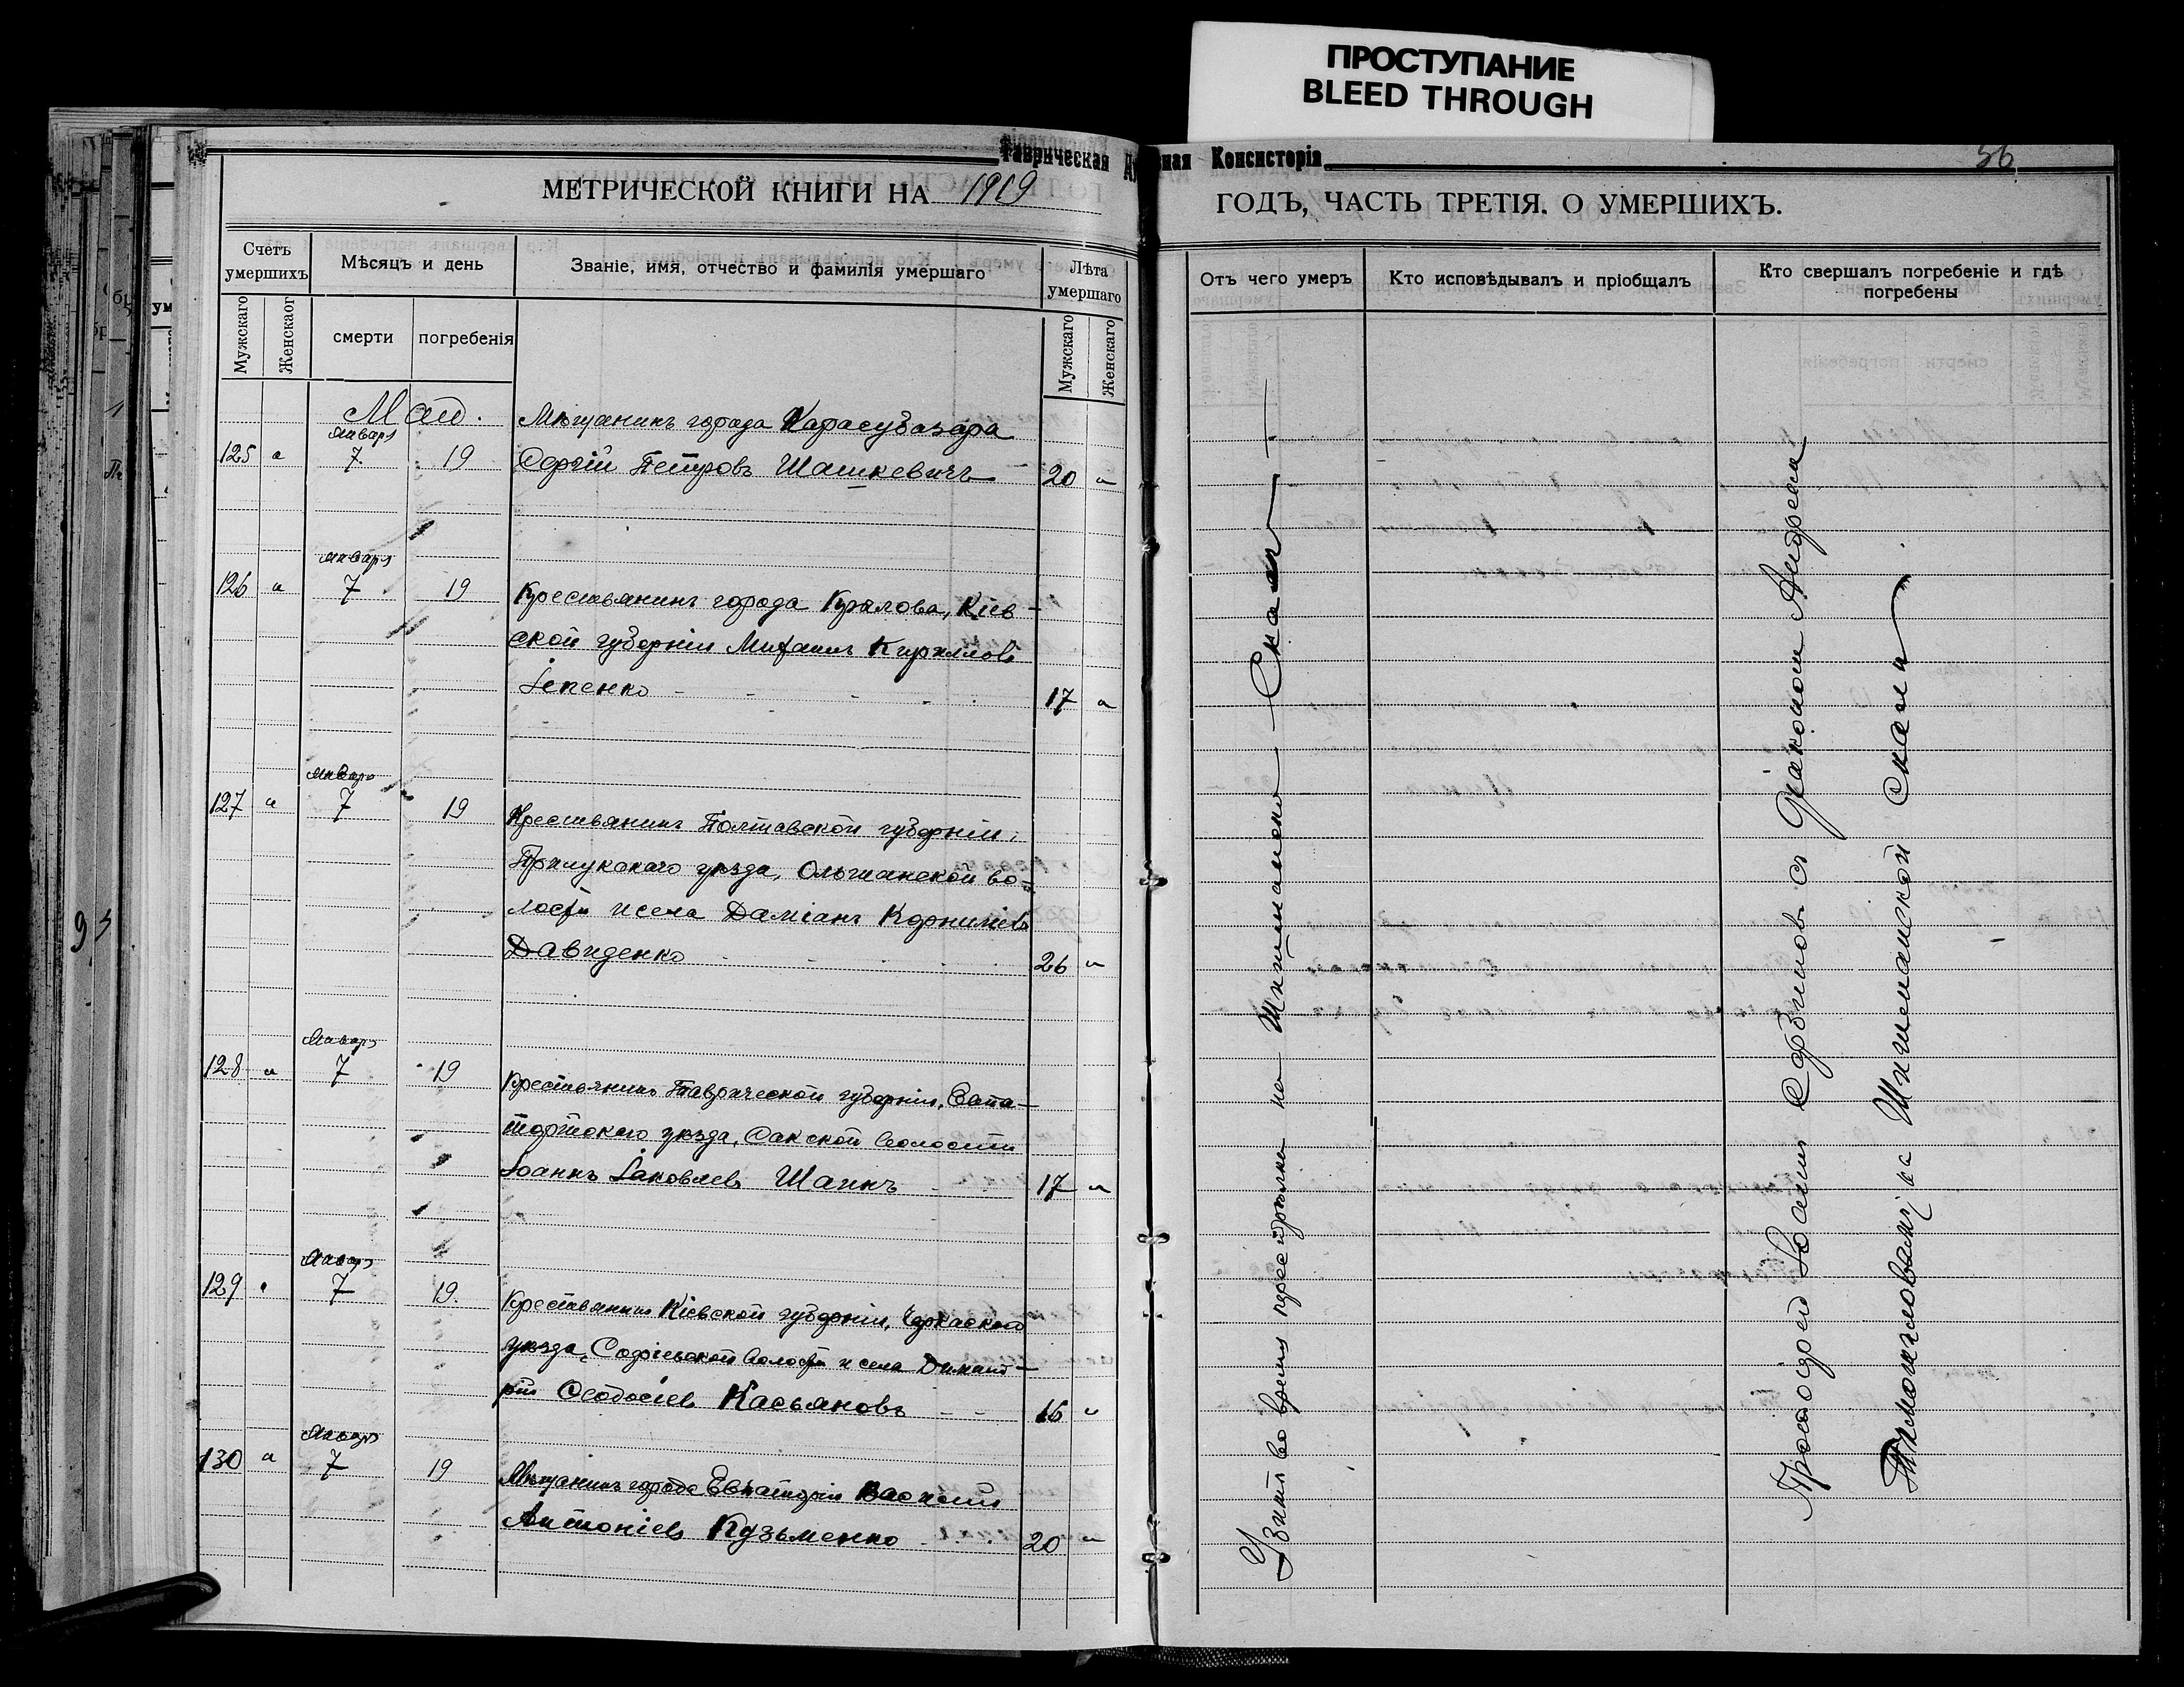 ПРОСТУПАНИЕ
BLEED THROUGH
Таврическая
ная Консисторія
56
МЕТРИЧЕСКОЙ КНИГИ НА 1919
ГОДЪ, ЧАСТЬ ТРЕТІЯ. О УМЕРШИХЪ.
Счетъ умершихъ
Мужскаго
Женскаог
Мѣсяцъ и день
смерти
погребенія
Званіе, имя, отчество и фамилія умершаго
Лѣта умершаго
Мужскаго
Женскаго
Отъ чего умеръ
Кто исповѣдывалъ и пріобщалъ
Кто свершалъ погребеніе и гдѣ погребены
Май.
Январь
125 " 7 19 Мѣщанинъ города Карасубазара
Сергій Петровъ Шашкевичъ 20 "
Январь
126 " 7 19 Крестьянинъ города Крылова, Кіев-
ской губерніи Михаилъ Кирилловъ
Іепенко 17 "
Январь
127 " 7 19 Крестьянинъ Полтавской губерніи,
Прилукскаго уѣзда, Ольшанской во-
лости и села Даміанъ Корниліевъ
Давиденко 26 "
Январь
128 " 7 19 Крестьянинъ Таврической губерніи, Евпа-
торійскаго уѣзда, Сакской волости
Іоаннъ Іаковлевъ Шагинъ 17 "
Январь
129 " 7 19. Крестьянинъ Кіевской губерніи, Черкаскаго
уѣзда, Софіевской волости и села Димит-
рій Ѳеодосіевъ Касьяновъ 16 "
Январь
130 " 7 19 Мѣщанинъ города Евпаторіи Василій
Антоніевъ Кузьменко 20 "
Убитъ во время перестрѣлки на Мититанской Скалѣ
Протоіерей Іоаннъ Сербиновъ съ діакономъ Андреемъ
на скалѣ